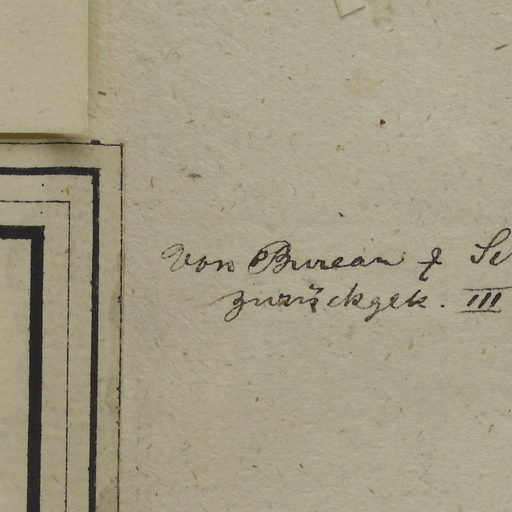 Von Bureau f Sc
zurückgek. III